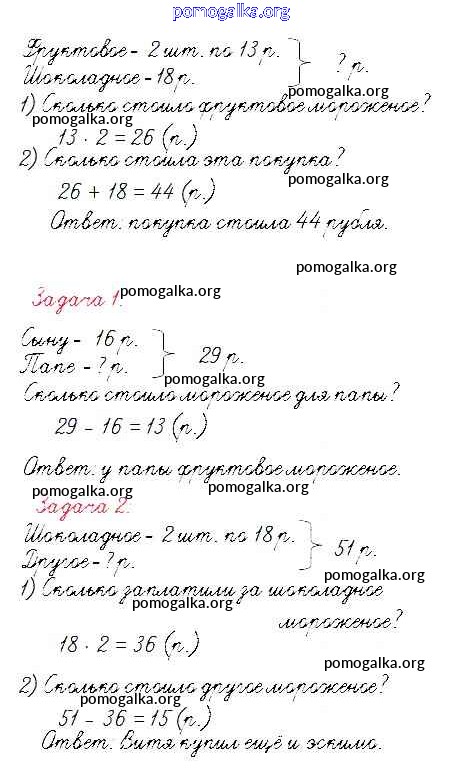 pomogalka.org
Фруктовое - 2 шт. по 13 р.
Шоколадное - 18 р.
? р.
pomogalka.org
1) Сколько стоило фруктовое мороженое?
pomogalka.org
13 · 2 = 26 (р.)
2) Сколько стоила эта покупка?
pomogalka.org
26 + 18 = 44 (р.)
Ответ: покупка стоила 44 рубля.
pomogalka.org
Задача 1.
pomogalka.org
Сыну - 16 р.
Папе - ? р.
29 р.
pomogalka.org
Сколько стоило мороженое для папы?
29 - 16 = 13 (р.)
Ответ: у папы фруктовое мороженое.
pomogalka.org
pomogalka.org
Задача 2.
Шоколадное - 2 шт. по 18 р.
Другое - ? р.
51 р.
pomogalka.org
1) Сколько заплатили за шоколадное
pomogalka.org
мороженое?
18 · 2 = 36 (р.)
pomogalka.org
2) Сколько стоило другое мороженое?
pomogalka.org
51 - 36 = 15 (р.)
Ответ: Витя купил ещё и эскимо.
pomogalka.org